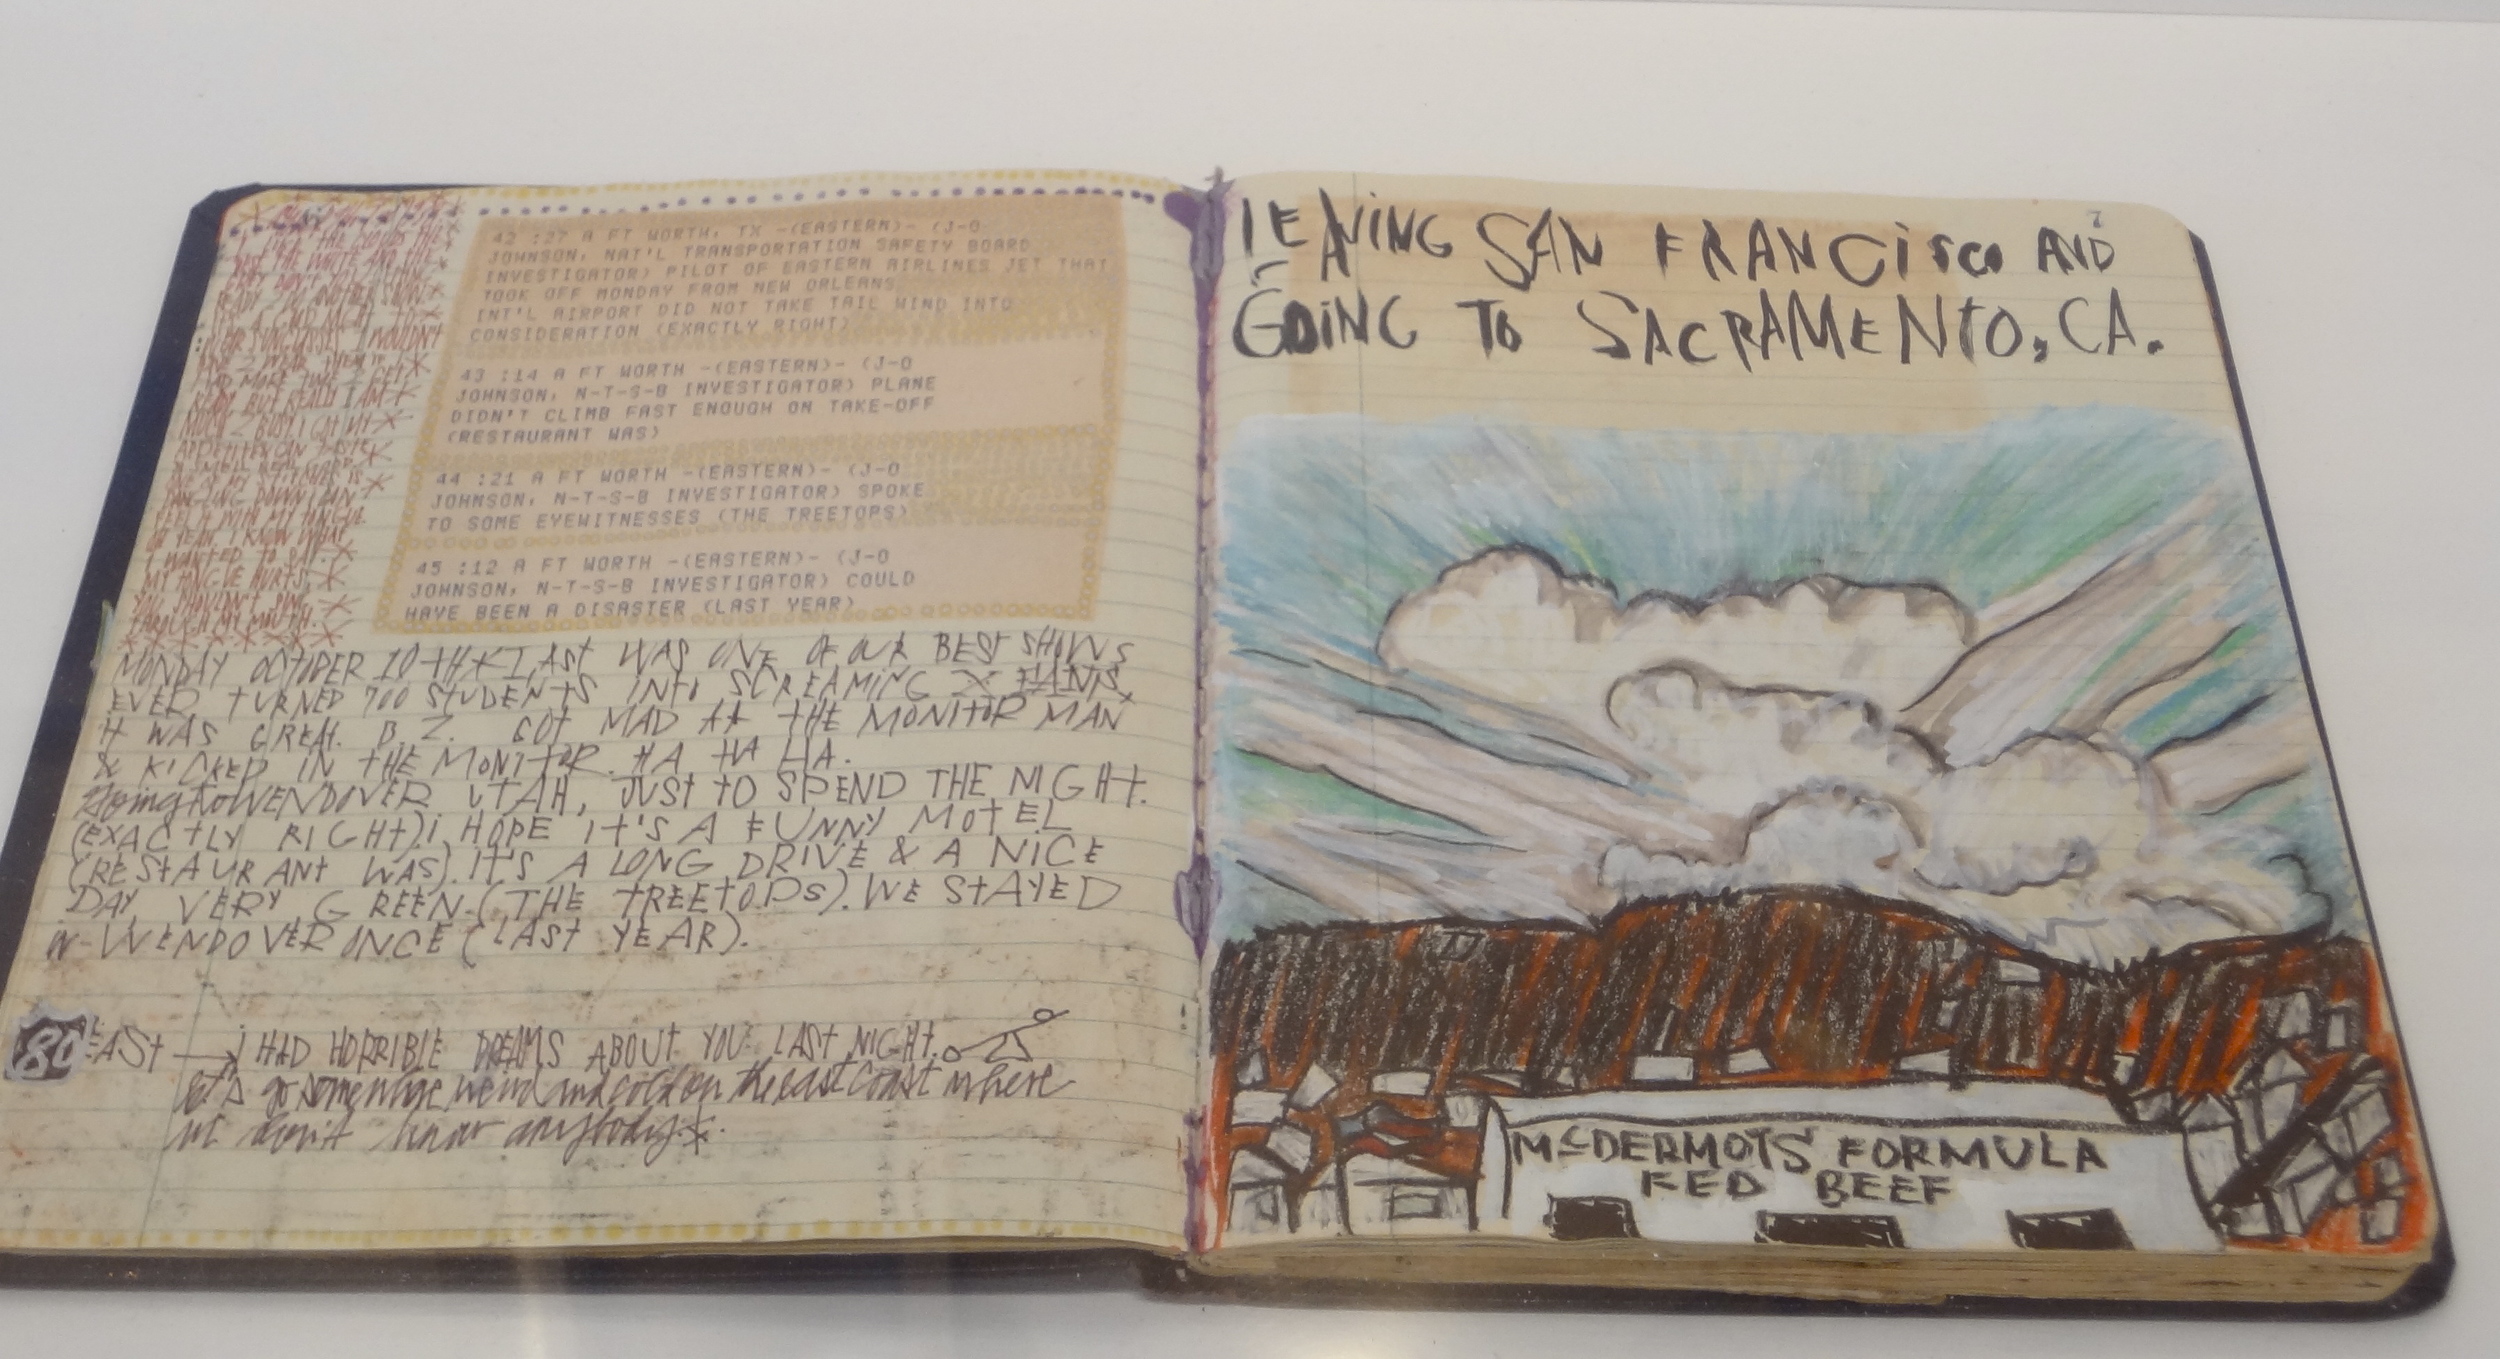 I LIKE THE CLOUDS THE
WAY THE WHITE AND THE
GREY DON'T
READY
YOUR SUNGLASSES I WOULDN'T
HAD MORE TIME I GET
READY BUT REALLY I AM
APPETITE CAN TASTE
& SMELL
ONE OF MY STITCHES IS
DANGLING DOWN I CAN
FEEL IT WITH MY TONGUE
OH YEAH, I KNOW WHAT
I WANTED TO SAY.
MY TONGUE HURTS,
YOU SHOULDN'T
THROUGH MY MOUTH.
42 :27 A FT WORTH, TX -(EASTERN)- (J-O
JOHNSON, NAT'L TRANSPORTATION SAFETY BOARD
INVESTIGATOR) PILOT OF EASTERN AIRLINES JET THAT
TOOK OFF MONDAY FROM NEW ORLEANS
INT'L AIRPORT DID NOT TAKE TAIL WIND INTO
CONSIDERATION (EXACTLY RIGHT)
43 :14 A FT WORTH -(EASTERN)- (J-O
JOHNSON, N-T-S-B INVESTIGATOR) PLANE
DIDN'T CLIMB FAST ENOUGH ON TAKE-OFF
(RESTAURANT WAS)
44 :21 A FT WORTH -(EASTERN)- (J-O
JOHNSON, N-T-S-B INVESTIGATOR) SPOKE
TO SOME EYEWITNESSES (THE TREETOPS)
45 :12 A FT WORTH -(EASTERN)- (J-O
JOHNSON, N-T-S-B INVESTIGATOR) COULD
HAVE BEEN A DISASTER (LAST YEAR)
MONDAY OCTOBER 10TH LAST WAS ONE OF OUR BEST SHOWS
EVER TURNED 700 STUDENTS INTO SCREAMING X FANS
IT WAS GREAT. B.Z. GOT MAD AT THE MONITOR MAN
& KICKED IN THE MONITOR. HA HA HA.
Going to WENDOVER UTAH, JUST TO SPEND THE NIGHT.
(EXACTLY RIGHT) i HOPE IT'S A FUNNY MOTEL
(RESTAURANT WAS). IT'S A LONG DRIVE & A NICE
DAY VERY GREEN (THE TREETOPS). WE STAYED
IN WENDOVER ONCE (LAST YEAR).
80 EAST → i HAD HORRIBLE DREAMS ABOUT YOU LAST NIGHT.
let's go somewhere weird and cold on the east coast where
we don't know anybody.
7
LEAVING SAN FRANCISCO AND
GOING TO SACRAMENTO, CA.
McDERMOTS' FORMULA
FED BEEF